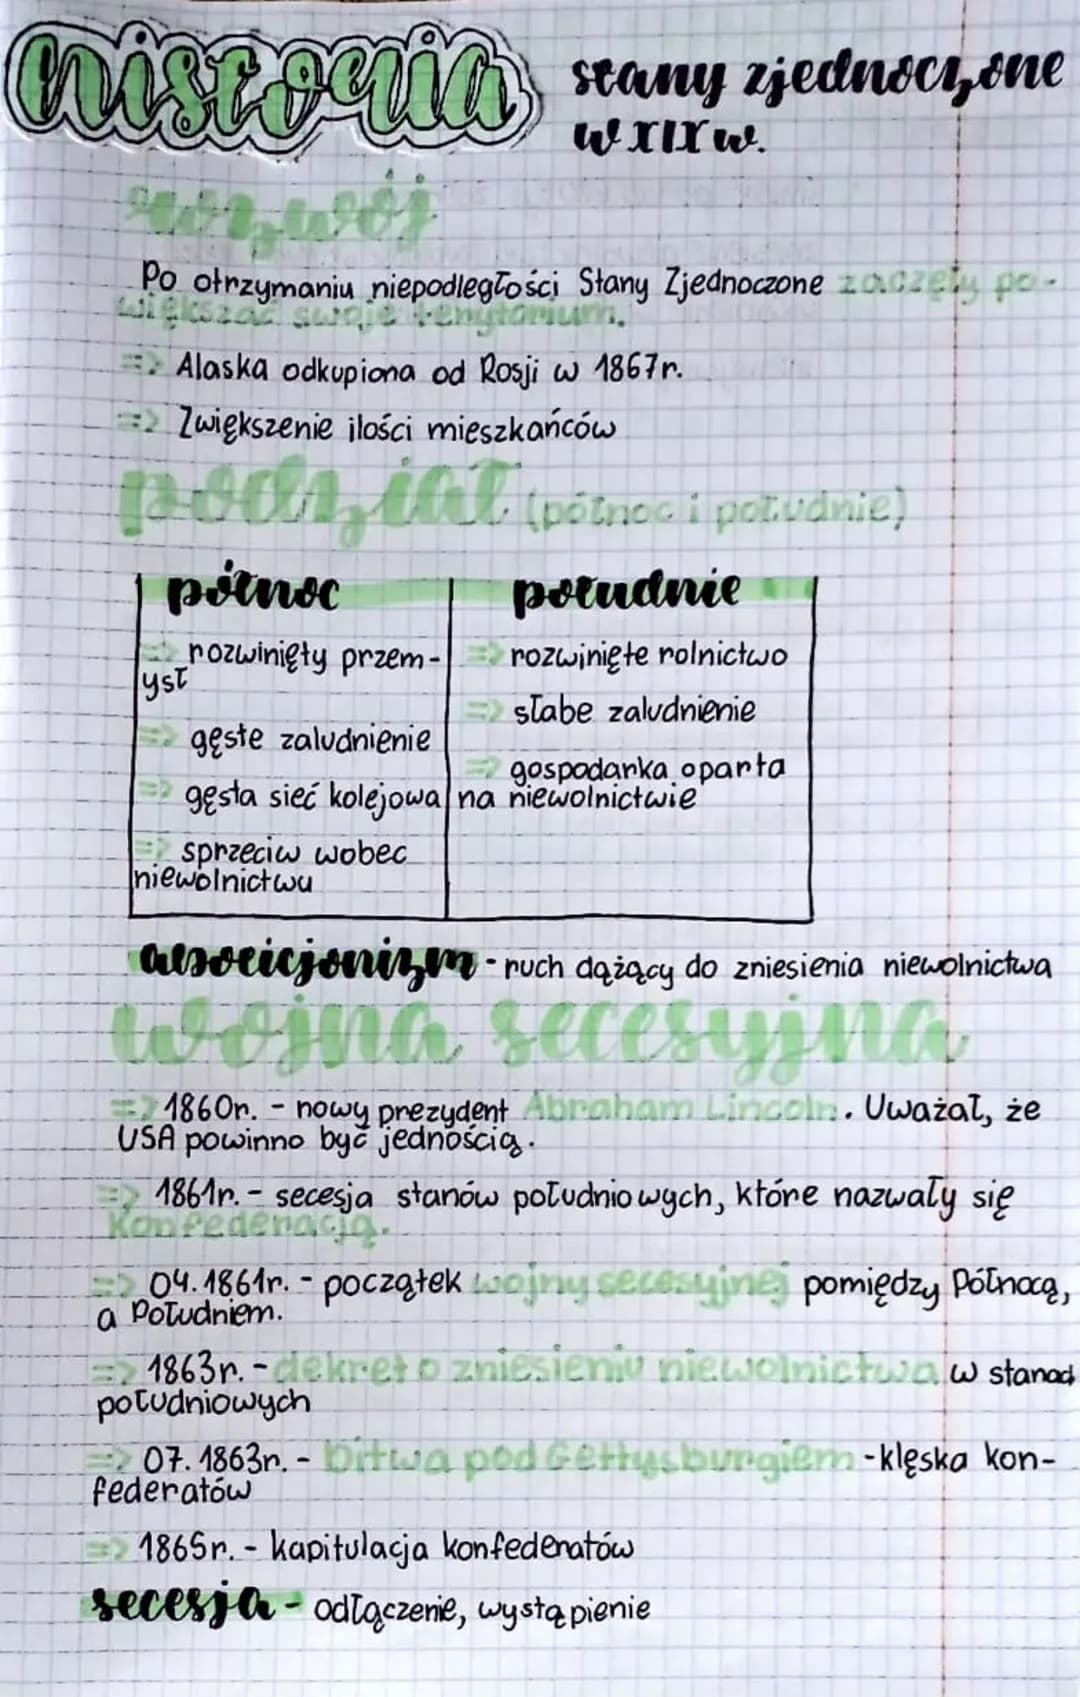 historia
stany zjednoczone
w XIX w.
rozwój
Po otrzymaniu niepodległości Stany Zjednoczone zaczęły po-
większać swoje terytorium.
=> Alaska odkupiona od Rosji w 1867r.
=> Zwiększenie ilości mieszkańców
podział (północ i południe)
północ
południe
=> rozwinięty przem-
yst
=> gęste zaludnienie
=> gęsta sieć kolejowa
=> sprzeciw wobec
niewolnictwu
=> rozwinięte rolnictwo
=> słabe zaludnienie
=> gospodarka oparta
na niewolnictwie
abolicjonizm - ruch dążący do zniesienia niewolnictwa
wojna secesyjna
=> 1860r. - nowy prezydent Abraham Lincoln. Uważał, że
USA powinno być jednością.
=> 1861r. - secesja stanów południowych, które nazwały się
Konfederacją.
=> 04.1861r. - początek wojny secesyjnej pomiędzy Północą,
a Południem.
=> 1863r. - dekret o zniesieniu niewolnictwa w stanach
południowych
=> 07.1863r. - bitwa pod Gettysburgiem - klęska kon-
federatów
=> 1865r. - kapitulacja konfederatów
secesja - odłączenie, wystąpienie